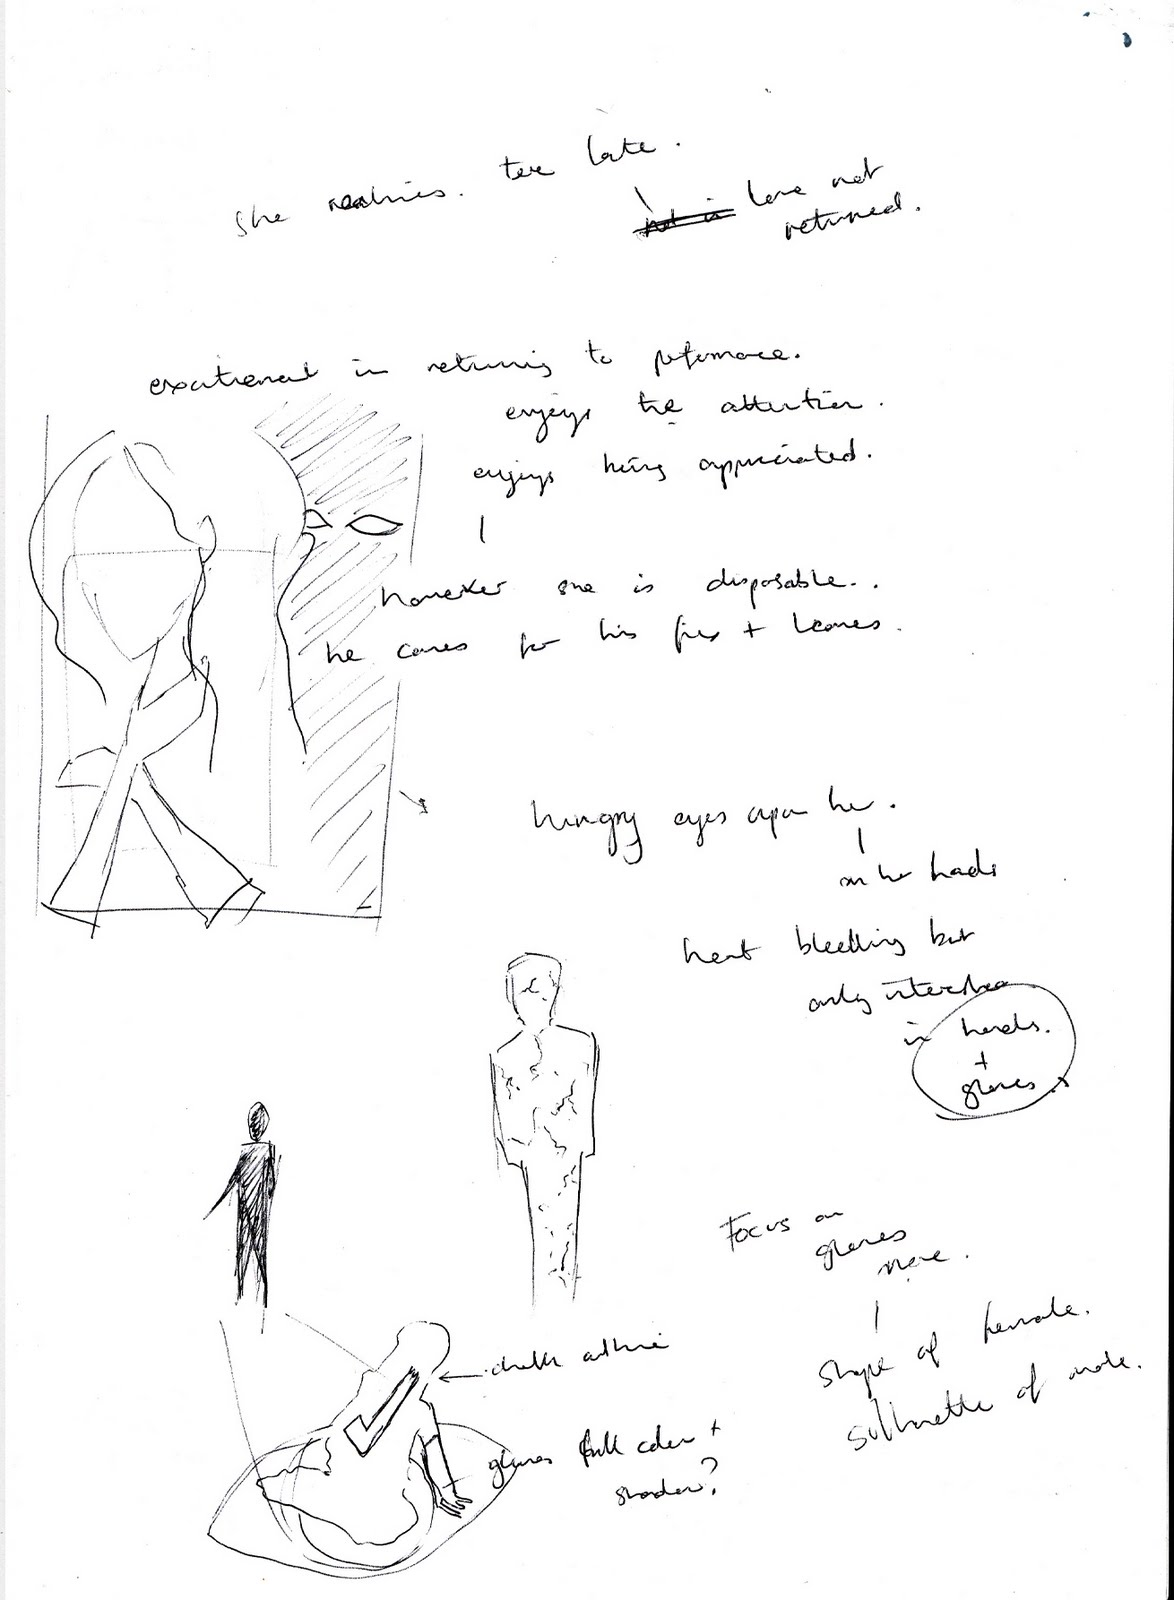 she realises. too late.
love not
returned.
in returning to performance.
enjoys the attention.
enjoys being appreciated.
|
however she is disposable..
he cares for his fix + leaves.
hungry eyes upon her.
|
on her hands
heart bleeding but
only interested
in hands.
+
gloves
Focus on
gloves
more.
|
shape of female.
silhouette of male.
chalk outline
gloves full color +
shadow?